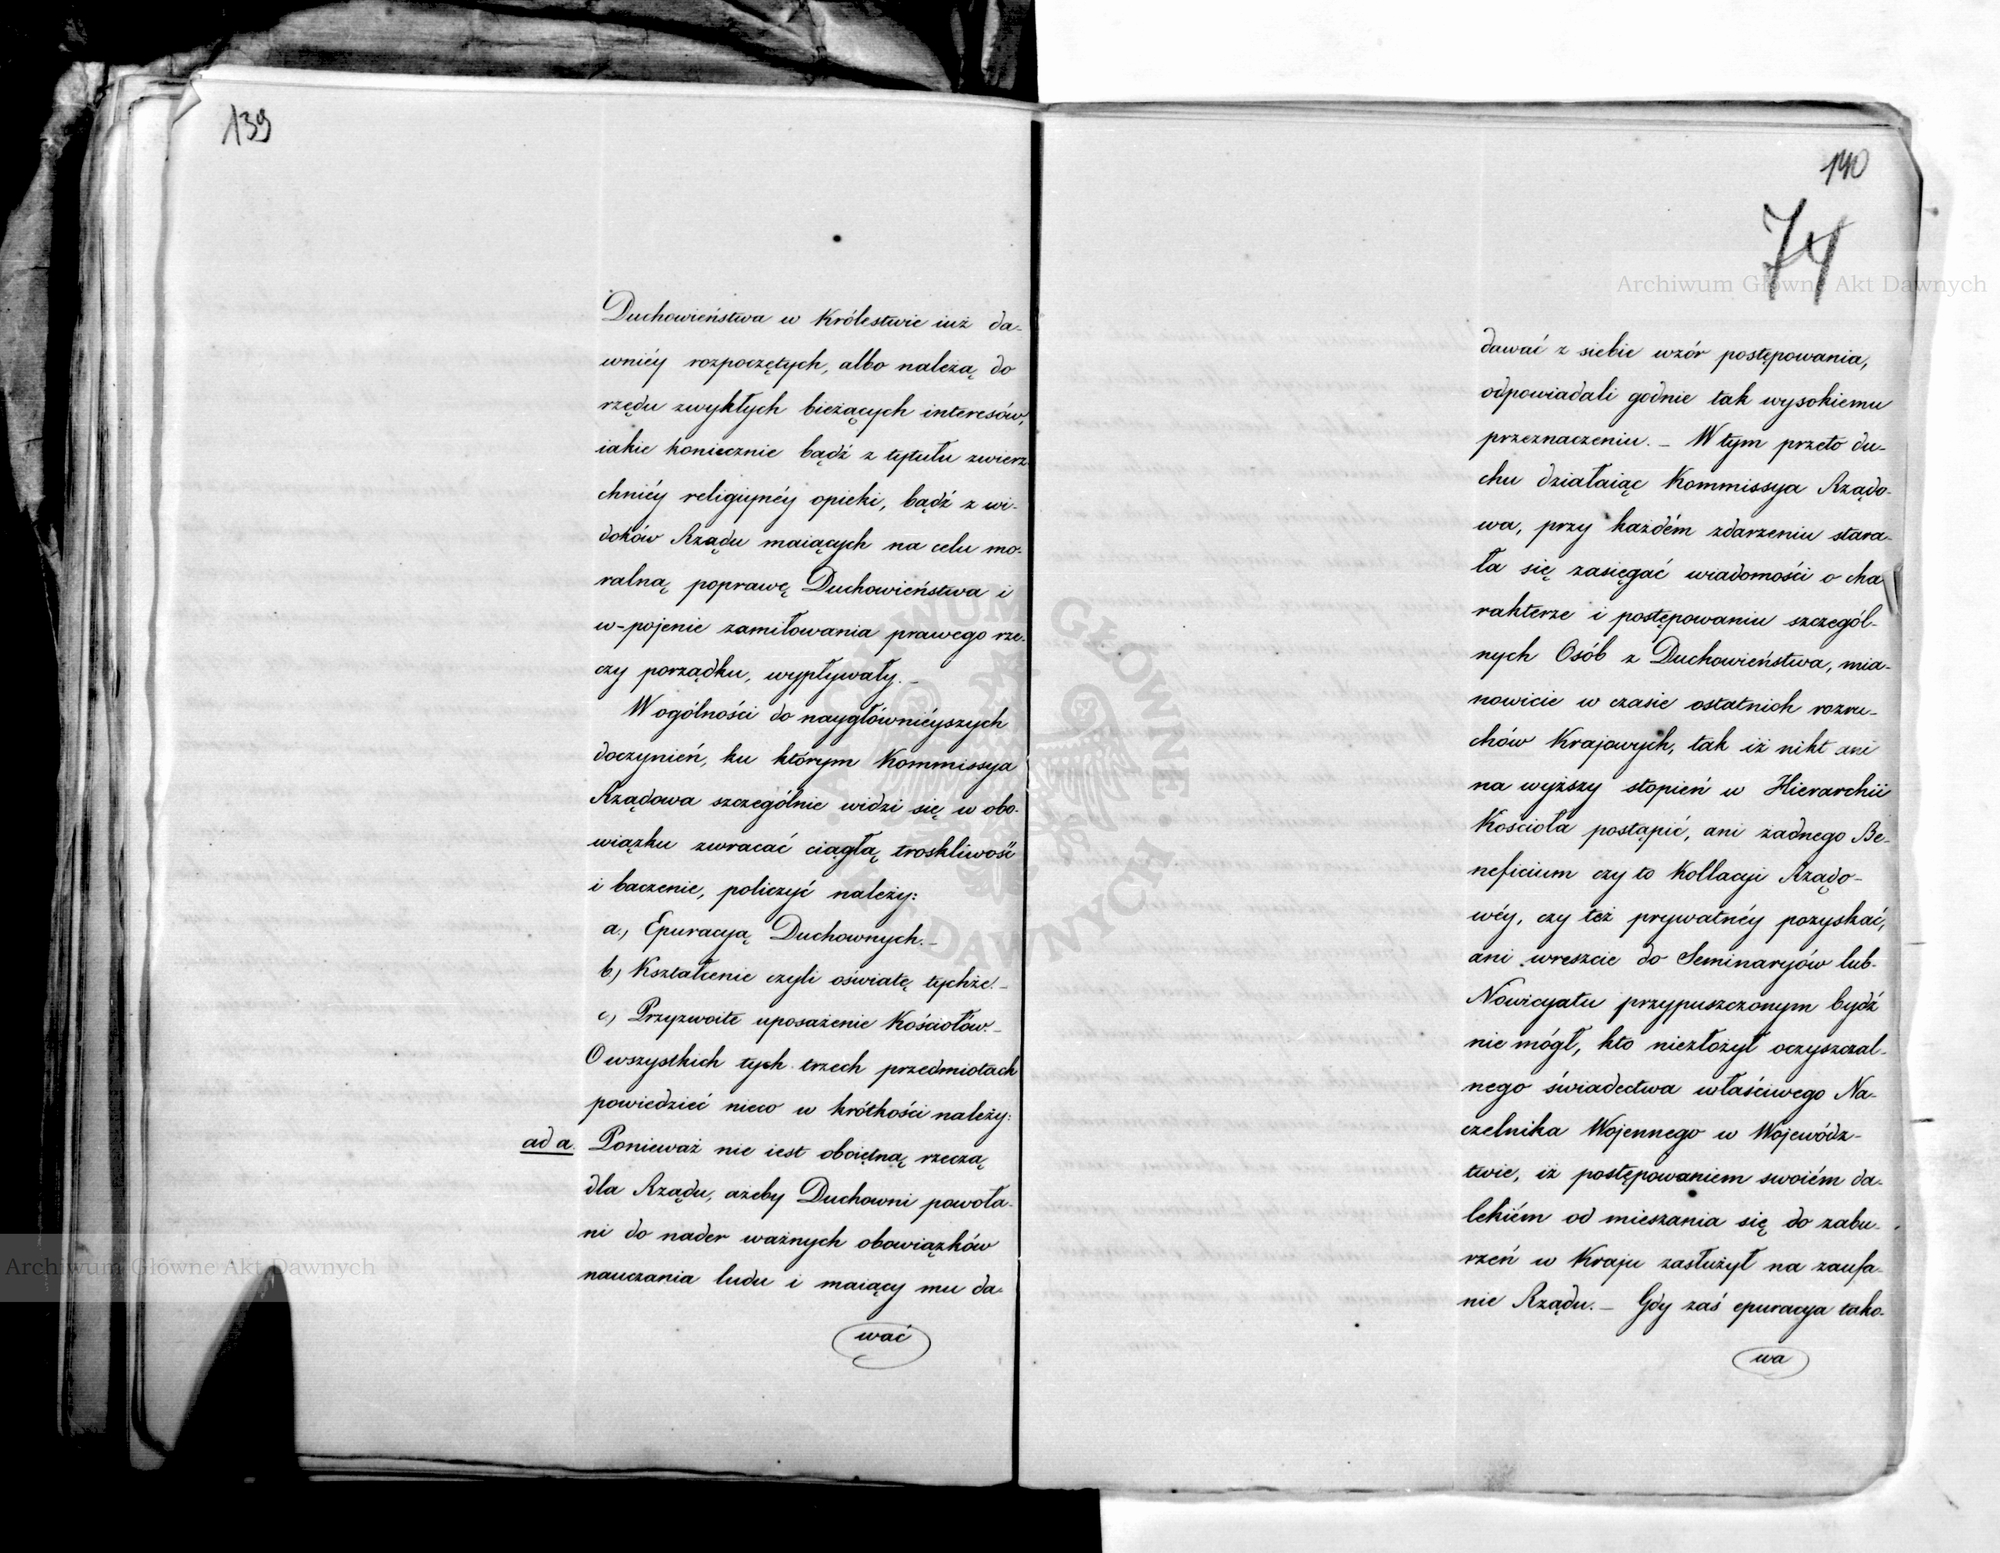 139
Duchowieństwa w Królestwie iuż da-
wniéy rozpoczętych, albo należą do
rzędu zwykłych bieżących interesów,
iakie koniecznie bądź z tytułu zwierz
chniéy religijnéy opieki, bądź z wi-
doków Rządu maiących na celu mo-
ralną poprawę Duchowieństwa i
w-pojenie zamiłowania prawego rze-
czy porządku, wypływały.—
W ogólności do naygłównieyszych
doczynień, ku którym Kommissya
Rządowa szczególnie widzi się w obo-
wiązku zwracać ciągłą troskliwość
i baczenie, policzyć należy:
a.) Epuracyą Duchownych.—
b.) Kształcenie czyli oświatę tychże.—
c.) Przyzwoite uposażenie Kościołów.—
O wszystkich tych trzech przedmiotach
powiedzieć nieco w krótkości należy:
ad a. Ponieważ nie iest oboiętną rzeczą
dla Rządu, ażeby Duchowni powoła-
ni do nader ważnych obowiązków
nauczania ludu i maiący mu da-
wać
140
74
dawać z siebie wzór postępowania,
odpowiadali godnie tak wysokiemu
przeznaczeniu.— W tym przeto du-
chu działaiąc Kommissya Rządo-
wa, przy każdém zdarzeniu stara-
ła się zasięgać wiadomości o cha
rakterze i postępowaniu szczegól-
nych Osób z Duchowieństwa, mia-
nowicie w czasie ostatnich rozru-
chów Krajowych, tak iż nikt ani
na wyższy stopień w Hierarchii
Kościoła postąpić, ani żadnego Be-
neficium czy to Kollacyi Rządo-
wéy, czy też prywatnéy pozyskać,
ani wreszcie do Seminaryów lub
Nowicyatu przypuszczonym bydź
nie mógł, kto niezłożył oczyszczal-
nego świadectwa właściwego Na-
czelnika Wojennego w Wojewódz-
twie, iż postępowaniem swoiém da-
lekiém od mieszania się do zabu-
rzeń w Kraju zasłużył na zaufa-
nie Rządu.— Gdy zaś epuracya tako-
wa
Archiwum Główne Akt Dawnych
Archiwum Główne Akt Dawnych
ARCHIWUM GŁÓWNE AKT DAWNYCH